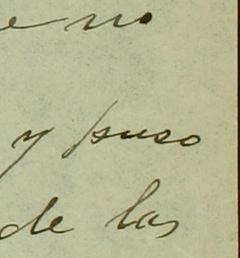 e no
y puso
de las